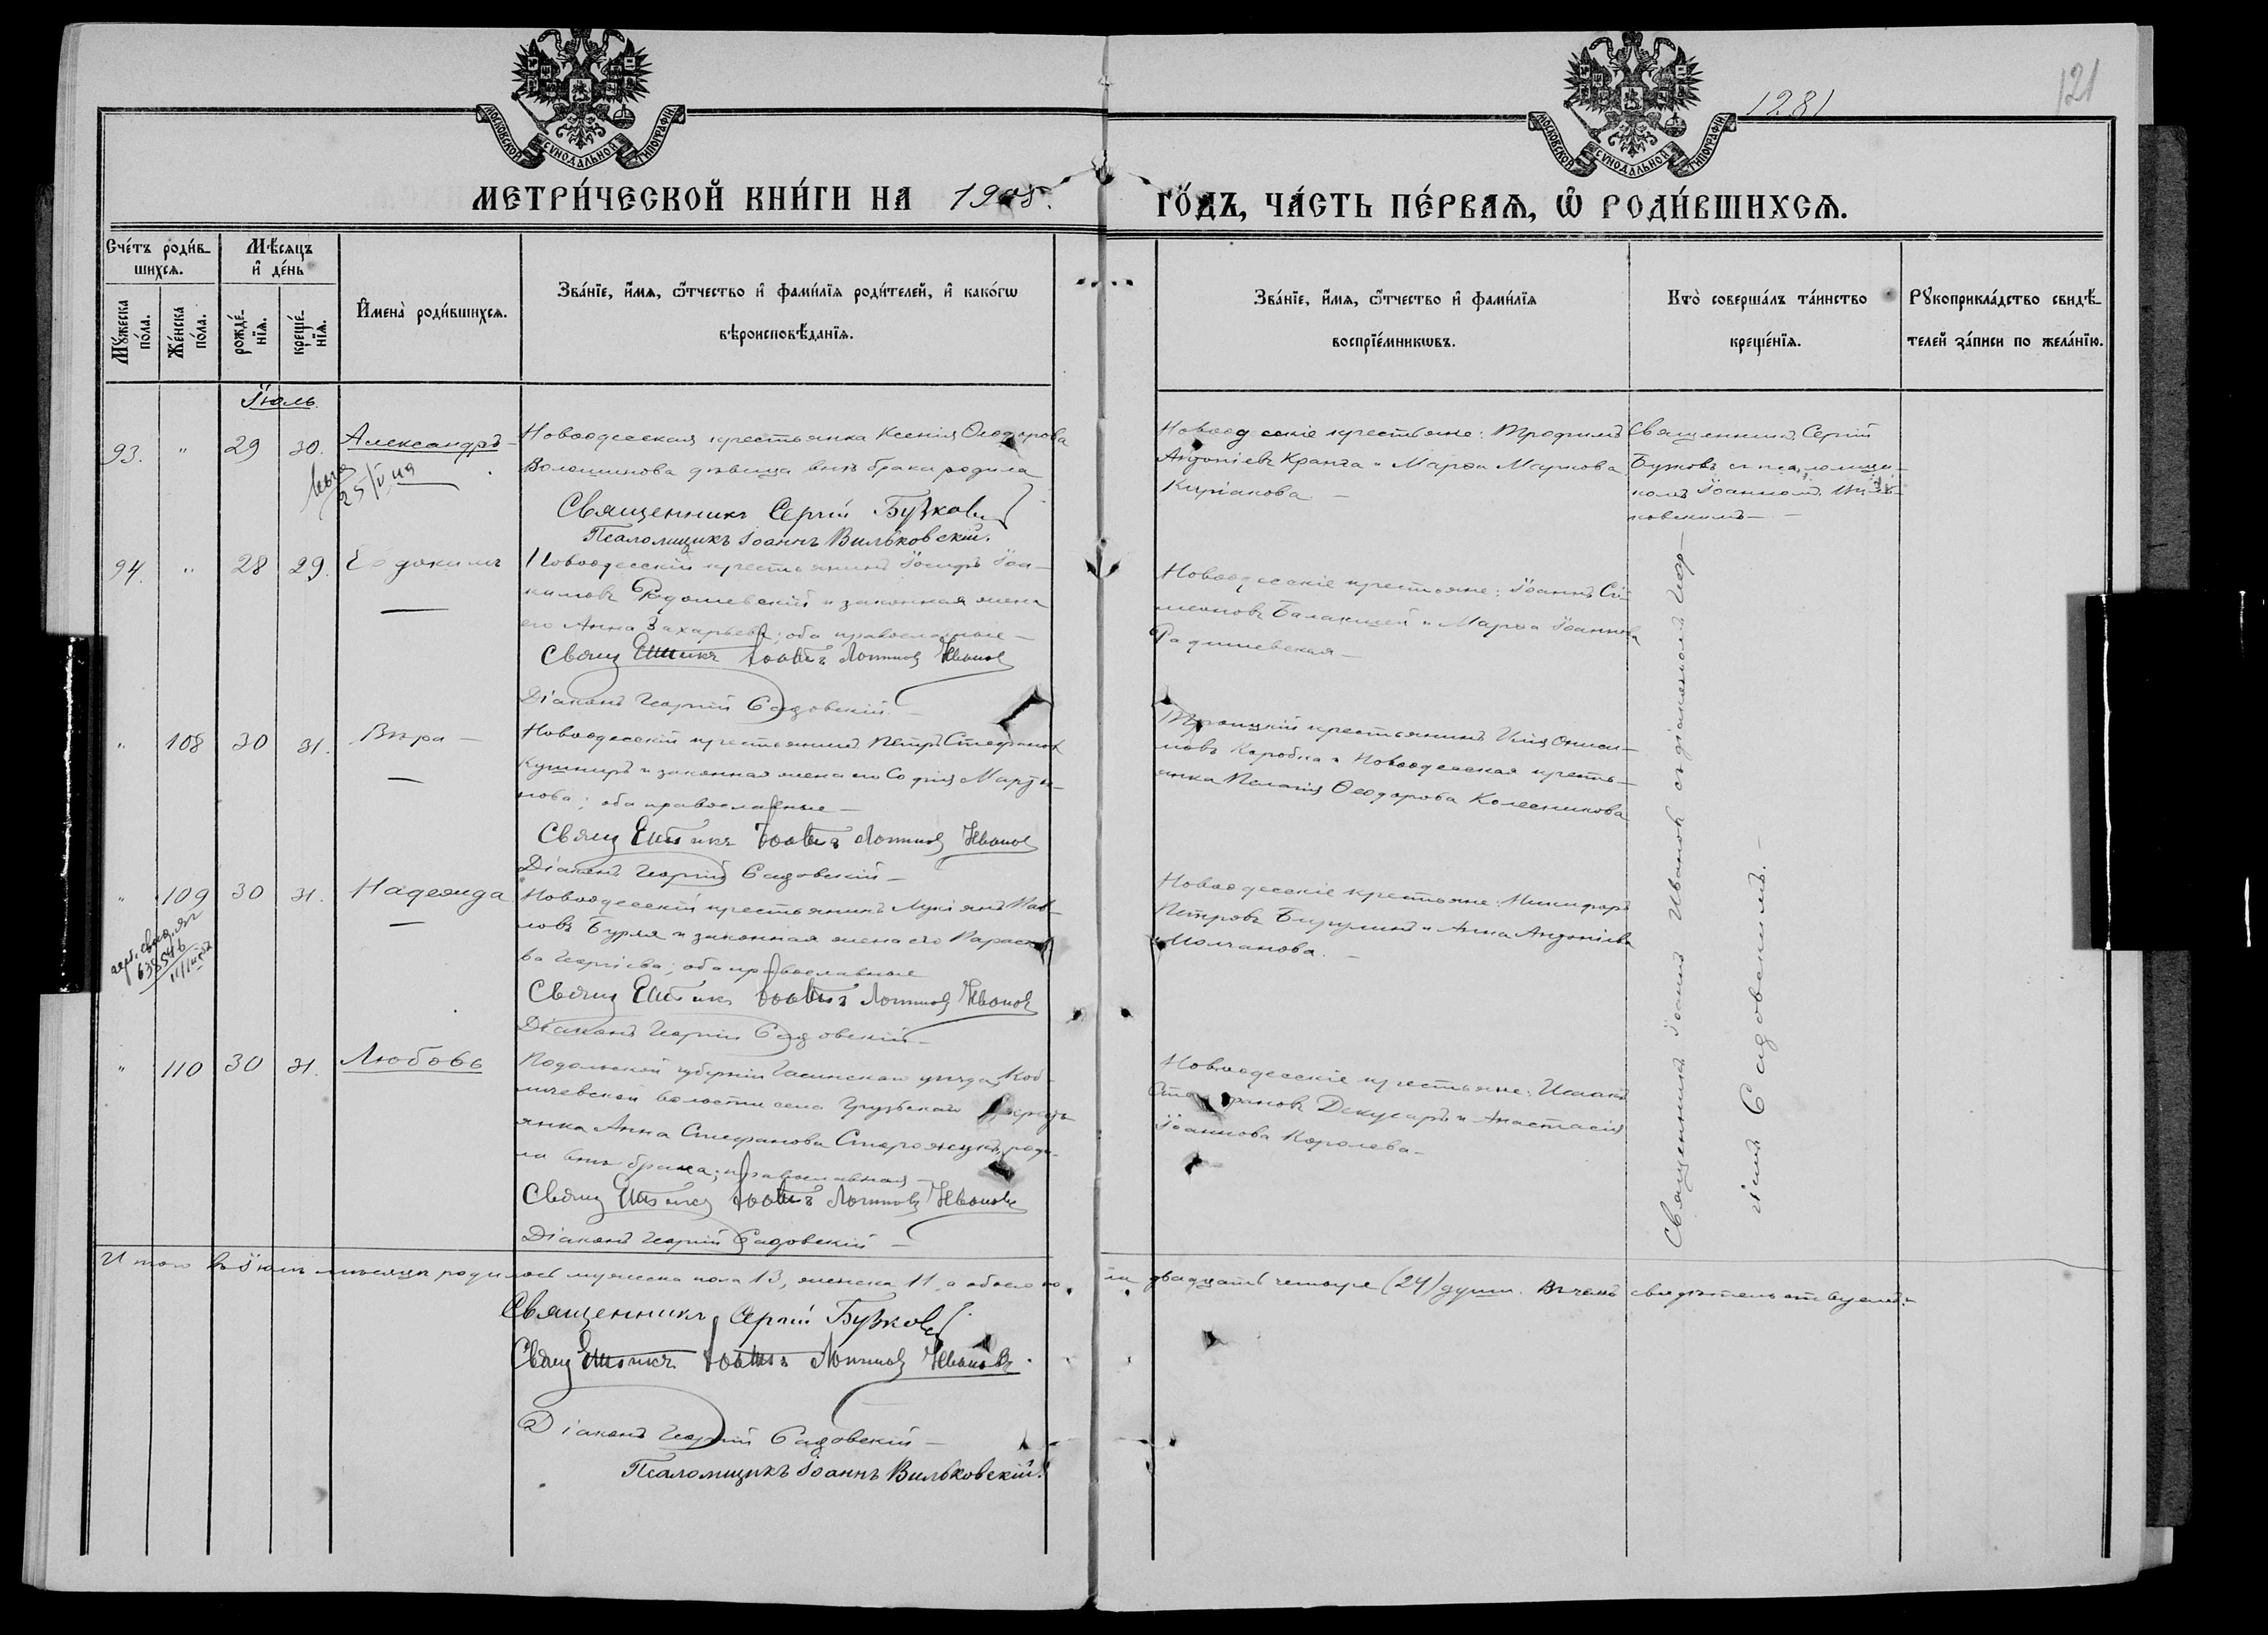 1281
121
МОСКОВСКОЙ СУНОДАЛЬНОЙ ТИПОГРАФІИ
МОСКОВСКОЙ СУНОДАЛЬНОЙ ТИПОГРАФІИ
МЕТРИ́ЧЕСКОЙ КНИ́ГИ НА 1908.
ГО́ДЪ, ЧА́СТЬ ПЕ́РВАѦ, Ѡ РОДИ́ВШИХСѦ.
Сче́тъ роди́в-
шихсѧ.
Мꙋ́жеска
по́ла.
Же́нска
по́ла.
Мѣ́сѧцъ
и҆ де́нь
рожде́-
нїѧ.
креще́-
нїѧ.
И҆мена̀ роди́вшихсѧ.
Зва́нїе, и҆́мѧ, ѻ҆́тчество и҆ фами́лїѧ роди́телей, и҆ како́гѡ
вѣроисповѣ́данїѧ.
Зва́нїе, и҆́мѧ, ѻ҆́тчество и҆ фами́лїѧ
воспрїе́мникѡвъ.
Кто̀ соверша́лъ та́инство
креще́нїѧ.
Рꙋкоприкла́дство свидѣ́-
телей за́писи по жела́нїю.
Іюль.
93. " 29 30. Александръ
25/V
Новоодесская крестьянка Ксенія Ѳеодорова
Волошинова дѣвица внѣ брака родила
Священникъ Сергій Бузковъ
Псаломщикъ Іоаннъ Вильковскій.
Новоодесскіе крестьяне: Трофимъ
Антоніевъ Кранга и Марѳа Маркова
Киріакова
Священникъ Сергій
Бузковъ съ псаломщи-
комъ Іоанномъ Виль-
ковскимъ
94. " 28 29. Евдокимъ
Новоодесскій крестьянинъ Іосифъ Іоа-
кимовъ Радошевскій и законная жена
его Анна Захарьева; оба православные
Свящ Іоаннъ Логиновъ Ивановъ
Діаконъ Георгій Садовскій
Новоодесскіе крестьяне: Іоаннъ Си-
меоновъ Балакшей и Марѳа Іоаннова
Радишевская
" 108 30 31. Вѣра
Новоодесскій крестьянинъ Петръ Стефановъ
Кушниръ и законная жена его Софія Марти-
нова; оба православные
Свящ Іоаннъ Логиновъ Ивановъ
Діаконъ Георгій Садовскій
Троицкій крестьянинъ Илія Ониси-
мовъ Коробка и Новоодесская кресть-
янка Пелагія Ѳеодорова Колесникова
" 109 30 31. Надежда
638546
Новоодесскій крестьянинъ Лукіянъ Пав-
ловъ Бурля и законная жена его Параске-
ва Георгіева; оба православные
Свящ Іоаннъ Логиновъ Ивановъ
Діаконъ Георгій Садовскій
Новоодесскіе крестьяне: Никифоръ
Петровъ и Анна Антоніева
Молчанова.
" 110 30 31. Любовь
Подольской губерніи уѣзда
волости села
янка Анна Стефанова роди-
ла внѣ брака; православная
Свящ Іоаннъ Логиновъ Ивановъ
Діаконъ Георгій Садовскій
Новоодесскіе крестьяне: Исаакъ
Стефановъ Декусаръ и Анастасія
Іоаннова Королева
Священникъ Іоаннъ Ивановъ съ діакономъ Геор-
гіемъ Садовскимъ.
Итого въ Іюлѣ мѣсяцѣ родилось мужеска пола 13, женска 11, а обоего по-
ла двадцать четыре (24) души. Въ чемъ свидѣтельствуемъ:
Священникъ Сергій Бузковъ.
Свящ Іоаннъ Логиновъ Ивановъ.
Діаконъ Георгій Садовскій
Псаломщикъ Іоаннъ Вильковскій.